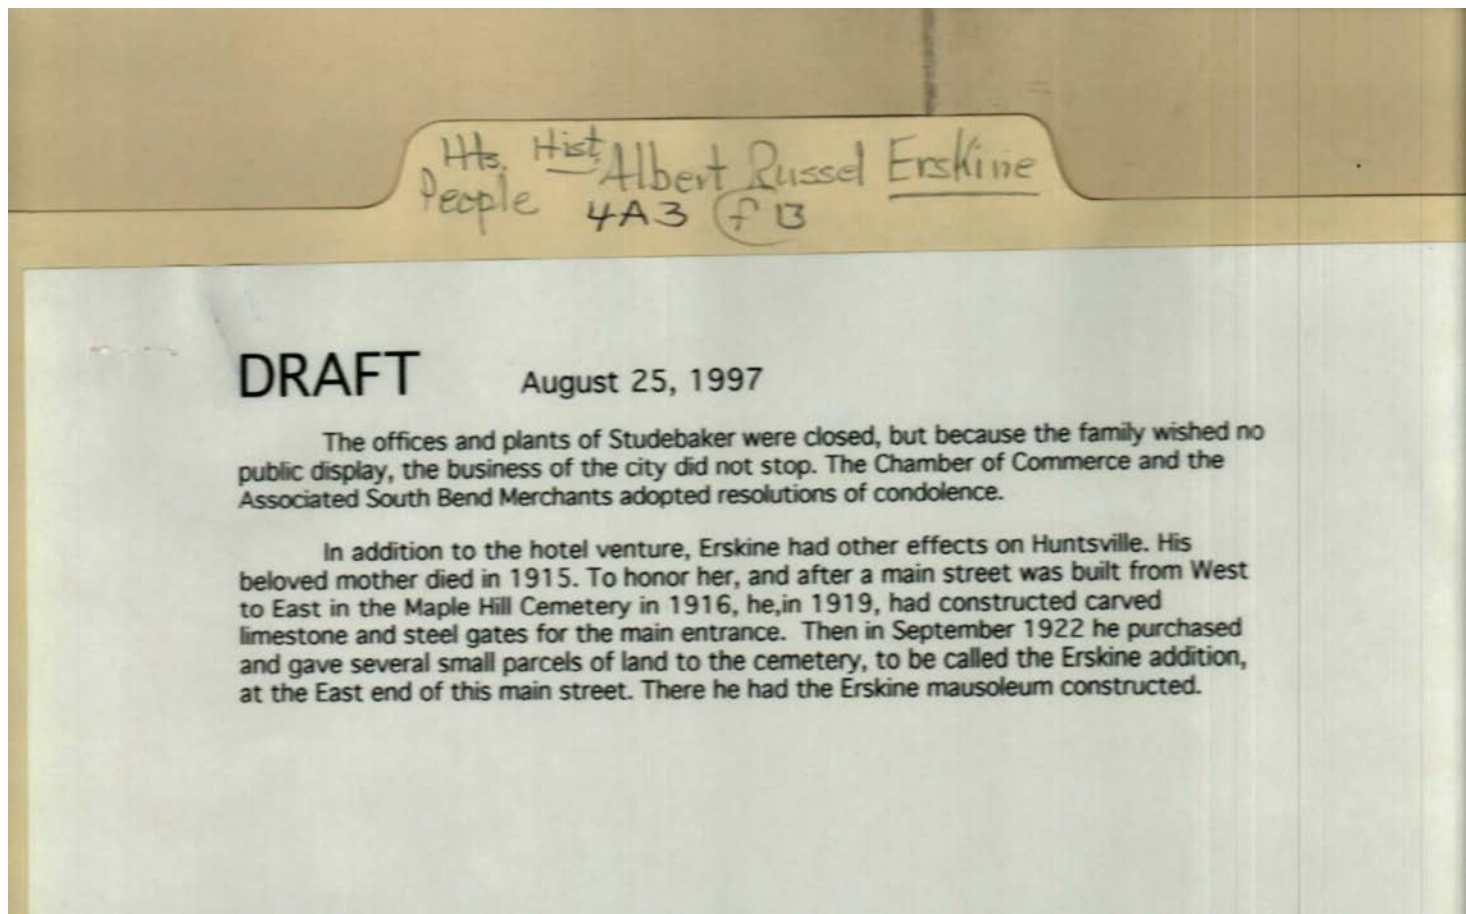 Hts. Hist. Albert Russel Erskine
People 4A3 f 13
DRAFT August 25, 1997
The offices and plants of Studebaker were closed, but because the family wished no
public display, the business of the city did not stop. The Chamber of Commerce and the
Associated South Bend Merchants adopted resolutions of condolence.
In addition to the hotel venture, Erskine had other effects on Huntsville. His
beloved mother died in 1915. To honor her, and after a main street was built from West
to East in the Maple Hill Cemetery in 1916, he,in 1919, had constructed carved
limestone and steel gates for the main entrance. Then in September 1922 he purchased
and gave several small parcels of land to the cemetery, to be called the Erskine addition,
at the East end of this main street. There he had the Erskine mausoleum constructed.